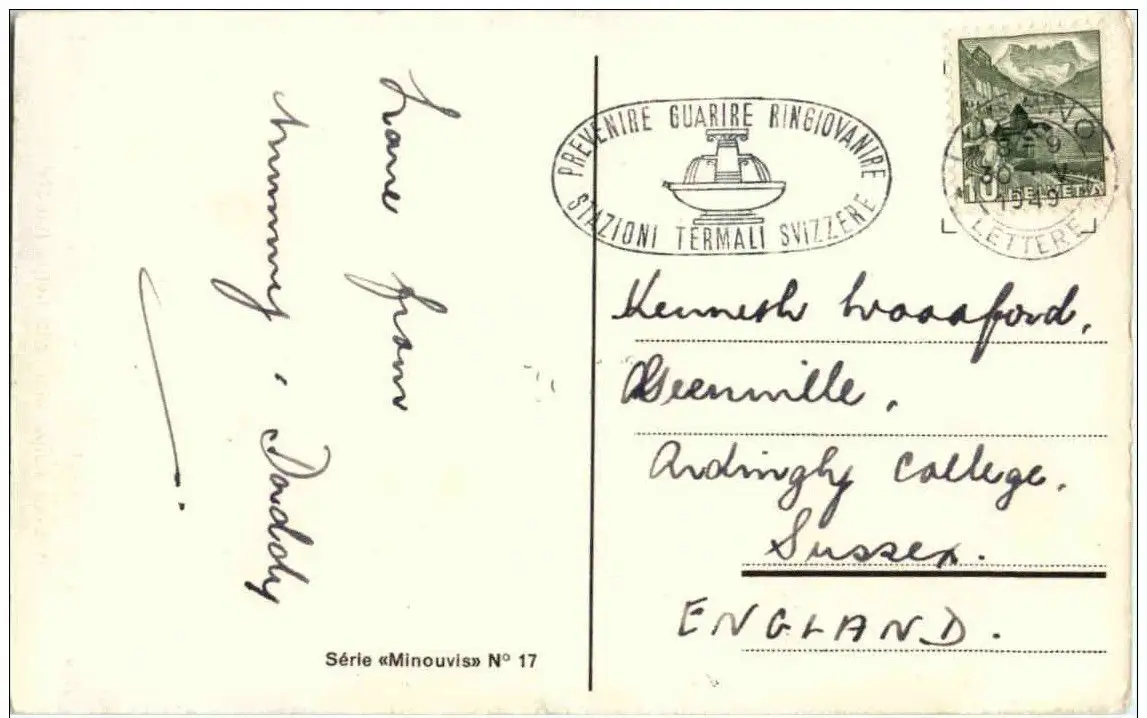 Love from
Mummy & Daddy
Série «Minouvis» N° 17
PREVENIRE GUARIRE RINGIOVANIRE
STAZIONI TERMALI SVIZZERE
10 HELVETIA
30 V
1949
LETTERE
Kenneth Woodford,
Greenville,
Ardingly College,
Sussex.
ENGLAND.